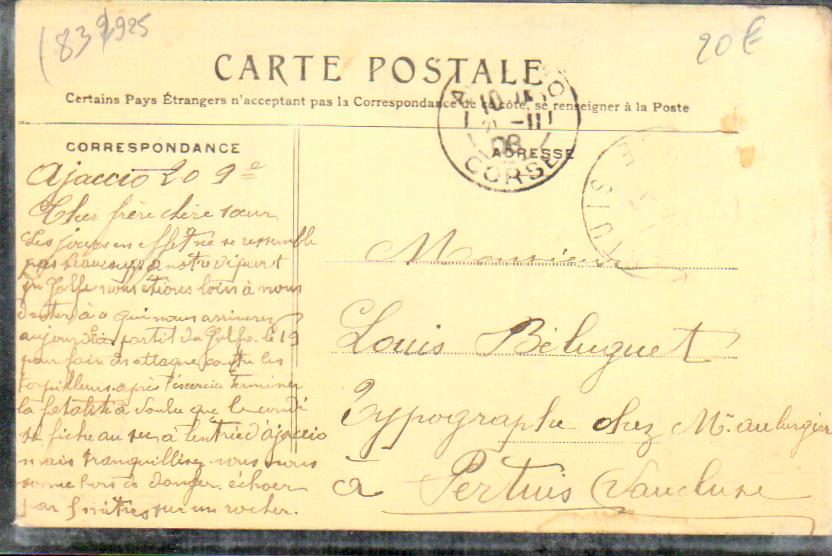 (83 1925
20 €
CARTE POSTALE
Certains Pays Étrangers n'acceptant pas la Correspondance de ce côté, se renseigner à la Poste
CORRESPONDANCE
ADRESSE
10
-11
08
CORSE
TUIS
Ajaccio 20 9
Cher frère chère sœur
Les jours en effet ne se ressemble
pas beaucoup a notre départ
du Golfe nous étions loin à nous
douter à a qui nous arriverez
aujourd'hui partit du Golfe. le 19
pour faire des attaque contre les
torpilleurs. après l'éxercice terminer
la fatalité à voulu que le
se fiche au sec à l'entrée d'ajaccio
mais tranquillisez-vous nous
somme hors de danger. échoer
par 5 mitres sur un rocher.
Monsieur
Louis Béluguet
Typographe chez Mr.
à Pertuis Vaucluse